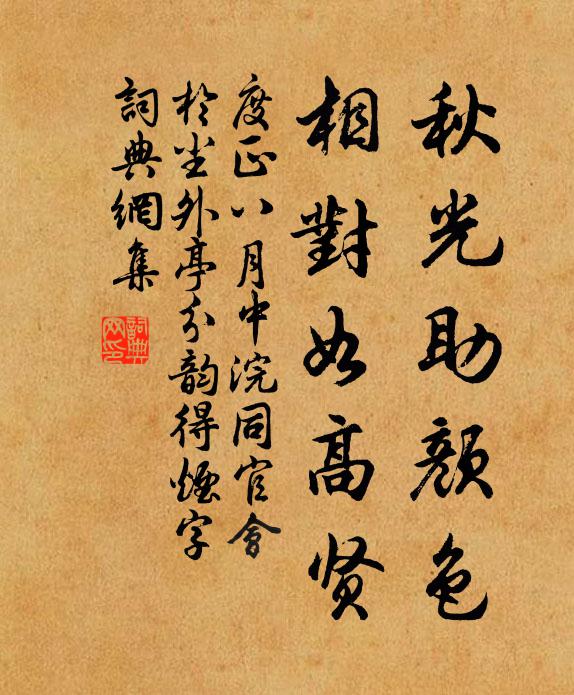 秋光助顔色
相對如高贤
度正八月中浣同官會
於尘外亭分韵得烟字
詞典網集
詞典网印